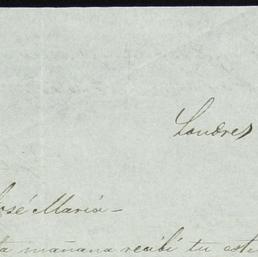 Londres
José Maria-
ta mañana recibí tu esti